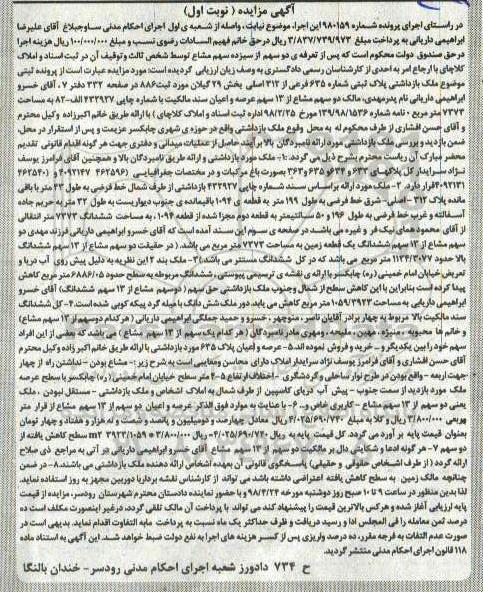 آگهی مزایده ( نوبت اول)
در راستای اجرای پرونده شماره ۹۸۰۱۵۹ این اجرا، موضوع نیابت، واصله از شعبه ی اول اجرای احکام مدنی ساوجبلاغ آقای علیرضا
ابراهیمی داریانی به پرداخت مبلغ ۳/۸۳۷/۷۳۹/۹۷۳ ریال درحق خانم فهیم السادات رضوی نسب و مبلغ ۱۰۰/۰۰۰/۰۰۰ ریال هزینه اجرا
درحق صندوق دولت محکوم است که پس از تعرفه ی دو سهم از سیزده سهم مشاع توسط شخص ثالث وتوقیف آن در ثبت اسناد و املاک
کلاچای با ارجاع امر به احدی از کارشناسان رسمی دادگستری به وصف زیان ارزیابی گردیده است: مورد مزایده عبارت است از پرونده ثبتی
موضوع ملک بازداشتی پلاک ثبتی شماره ۶۳۵ فرعی از ۳۱۲ اصلی بخش ۲۹ گیلان مورد ثبت ۸۸۶ در صفحه ۳۳۲ دفتر ۷ ، آقای خسرو
ابراهیمی داریانی نام پدرمهدی، مالک دو سهم مشاع از ۱۳ سهم عرصه و اعیان سند مالکیت با شماره چاپی ۴۳۲۹۳۷ الف-۸۲ به مساحت
۷۳۷۳ متر مربع - نامه شماره ۱۳۹/۹۸/۱۵۳۶ مورخ ۹۸/۲/۲۵ اداره ثبت اسناد و املاک کلاچای ) با ارائه طریق خانم اکبرزاده وکیل محترم
و آقای حسن افشاری از طرف محکوم له به محل وقوع ملک بازداشتی واقع در حوزه ی شهری چابکسر عزیمت و پس از استقرار در محل،
ضمن بازدید و بررسی ملک بازداشتی مورد ارائه نامبردگان بالا برآیند حاصل از عملیات میدانی و دفتری جهت هر گونه اقدام قانونی تقدیم
محضر مبارک آن ریاست محترم بشرح ذیل می گردد. :۱- ملک مورد بازداشتی و ارائه طریق نامبردگان بالا و همچنین آقای فرامرز یوسف
نژاد سرایدار کل پلاکهای ۶۳۳ و ۶۳۴ و ۶۳۵ و۶۳۶ بصورت باغ مرکبات و در مختصات جغرافیایی ( ۴۶۲۵۹۶ ۴۰۹۲۱۴۷ و ۴۶۲۵۴۰
۴۰۹۲۱۳۱ قرار دارد. ۲- ملک مورد ارائه براساس سند شماره چاپی ۴۳۲۹۲۷ بازداشتی از طرف شمال خط فرضی به طول ۴۳ متر با باقی
مانده پلاک ۳۱۲ - اصلی - شرق خط فرضی به طول ۱۹۹ متر به قطعه ی ۱۰۹۴ باقیمانده ی جنوب دیواریست به طول ۳۲ متر به حریم جاده
آسفالته و غرب خط فرضی به طول ۱۹۶ و ۵۰ سانتیمتر به قطعه دوم مجزا شده از قطعه ۱۰۹۴ ، به مساحت ششدانگ ۷۳۷۳ متر انتقالی
از آقای محمود همای نیک فر و غیره می باشد. در صفحه ی سوم این سند آمده است که آقای خسرو ابراهیمی داریانی فرزند مهدی دو
سهم از ۱۳ سهم ششدانگ یک قطعه زمین به مساحت ۷۳۷۳ متر مربع می باشد. ( در حقیقت دو سهم مشاع از ۱۳ سهم ششدانگ
بالا حدود ۱۱۳۴/۳۰۷۷ متر مربع می باشد که در کل ششدانگ مستتر می باشد)۳- ملک بند ۲ این نظریه به دلیل پیش روی آب دریا و
تعریض خیابان امام خمینی (ره) چابکسر با ارائه ی نقشه ی ترسیمی پیوستی، ششدانگ مربوطه به سطح حدود ۶۸۸۶/۰۵ مترمربع کاهش
پیدا کرده است بنابراین با این کاهش سطح از شمال وجنوب ملک بازداشتی حق سهم ( دو سهم مشاع از ۱۳ سهم ششدانگ) آقای خسرو
ابراهیمی داریانی به مساحت ۱۰۵۹/۳۹۲۳ متر مربع کاهش می یابد. دور ملک شش دانگ با میله گرد پیکه کوبی شده است۴- کل ششدانگ
سند مالکیت بالا مربوط به چهار برادر آقایان ناصر، منوچهر ، خسرو و حمید جملگی ابراهیمی داریانی ( هرکدام دوسهم از ۱۳ سهم مشاع)
و خانم ها محبوبه ، منیژه ، مهین ، ملیحه، ومهری مادر نامبردگان ( هر کدام یک سهم از ۱۳ سهم مشاع ) می باشد که بعضی از این افراد
سهم خود را بین یکدیگر و .. خرید و فروش نموده اند.۵- عرصه و اعیان پلاک ۶۳۵ مورد بازداشتی با ارائه طریق خانم اکبر زاده وکیل محترم
آقای حسن افشاری و آقای فرامرز یوسف نژاد سرایدار املاک دارای محاسن ومعایبی است به شرح زیر: - مشاع بودن - نداشتن راه از چهار
جهت اربعه - واقع بودن در طرح نوار ساحلی و گردشگری - اختلاف ارتفاع ۵-۴ متر سطح خیابان امام خمینی (ره) چابکسر با سطح عرصه
ملک مورد بازدید از سمت جنوب - پیش آب دریای کاسپین از طرف شمال به املاک اشخاص و ملک بازداشتی - مستقل نبودن ، ملک
یعنی دو سهم از ۱۳ سهم مشاع - کاربری خاص و.. ۶- با عنایت به موارد فوق الذکر قیمت و اعیان دو سهم از ۱۳ سهم مشاع از قرار متر
مربعی ۳/۸۰۰/۰۰۰ ریال و کلا به مبلغ ۴/۰۲۵/۶۹۰/۷۴۰ ریال معادل چهارصد و دومیلیون و پانصد و شصت و نه هزار و هفتاد و چهار تومان
بعنوان قیمت پایه بر آورد می گردد. کل قیمت پایه به ریال ۴/۰۲۵/۶۹۰/۷۴۰ = ریال ۳/۸۰۰/۰۰۰ × m۲ ۱۰۵۹/۳۹۲۳ سطح کاهش یافته از
دو سهم ۷- هر گونه ادعا و شکایتی دال بر مالکیت دو سهم مشاع از ۱۳ سهم آقای خسرو ابراهیمی داریانی در آتی به مراجع ذی صلاح
ارائه گردد ( از طرف اشخاص حقوقی و حقیقی) پاسخگوی قانونی آن بعهده اشخاص ارائه دهنده ملک بازداشتی می باشند.۸- در ضمن
چنانچه مالک زمین به سطح کاهش یافته اعتراضی داشته باشد می تواند از کارشناس نقشه بردار با دوربین مجهز به روز استفاده نماید.
لذا بدین منظور در ساعت ۹ تا ۱۰ صبح روز دوشنبه مورخه ۹۸/۳/۲۴ با حضور نماینده دادستان محترم شهرستان رودسر، مزایده از قیمت
پایه ارزیابی آغاز شده و هرکس بالاترین قیمت را پیشنهاد کند می تواند با پرداخت آن مالک تلقی گردد، درغیر اینصورت مکلف است ده
درصد ثمن معامله را فی المجلس ادا و رسید دریافت و ظرف حداکثر یک ماه نسبت به پرداخت مابه التفاوت اقدام نماید. بدیهی است در
صورت عدم التفات به فرجه مقرر، ده درصد واریزی پس از کسر هزینه های اجرا به نفع دولت ضبط خواهد شد. این آگهی به استناد ماده
۱۱۸ قانون اجرای احکام مدنی منتشر گردید.
ح ۷۳۴ دادورز شعبه اجرای احکام مدنی رودسر- خندان بالنگا